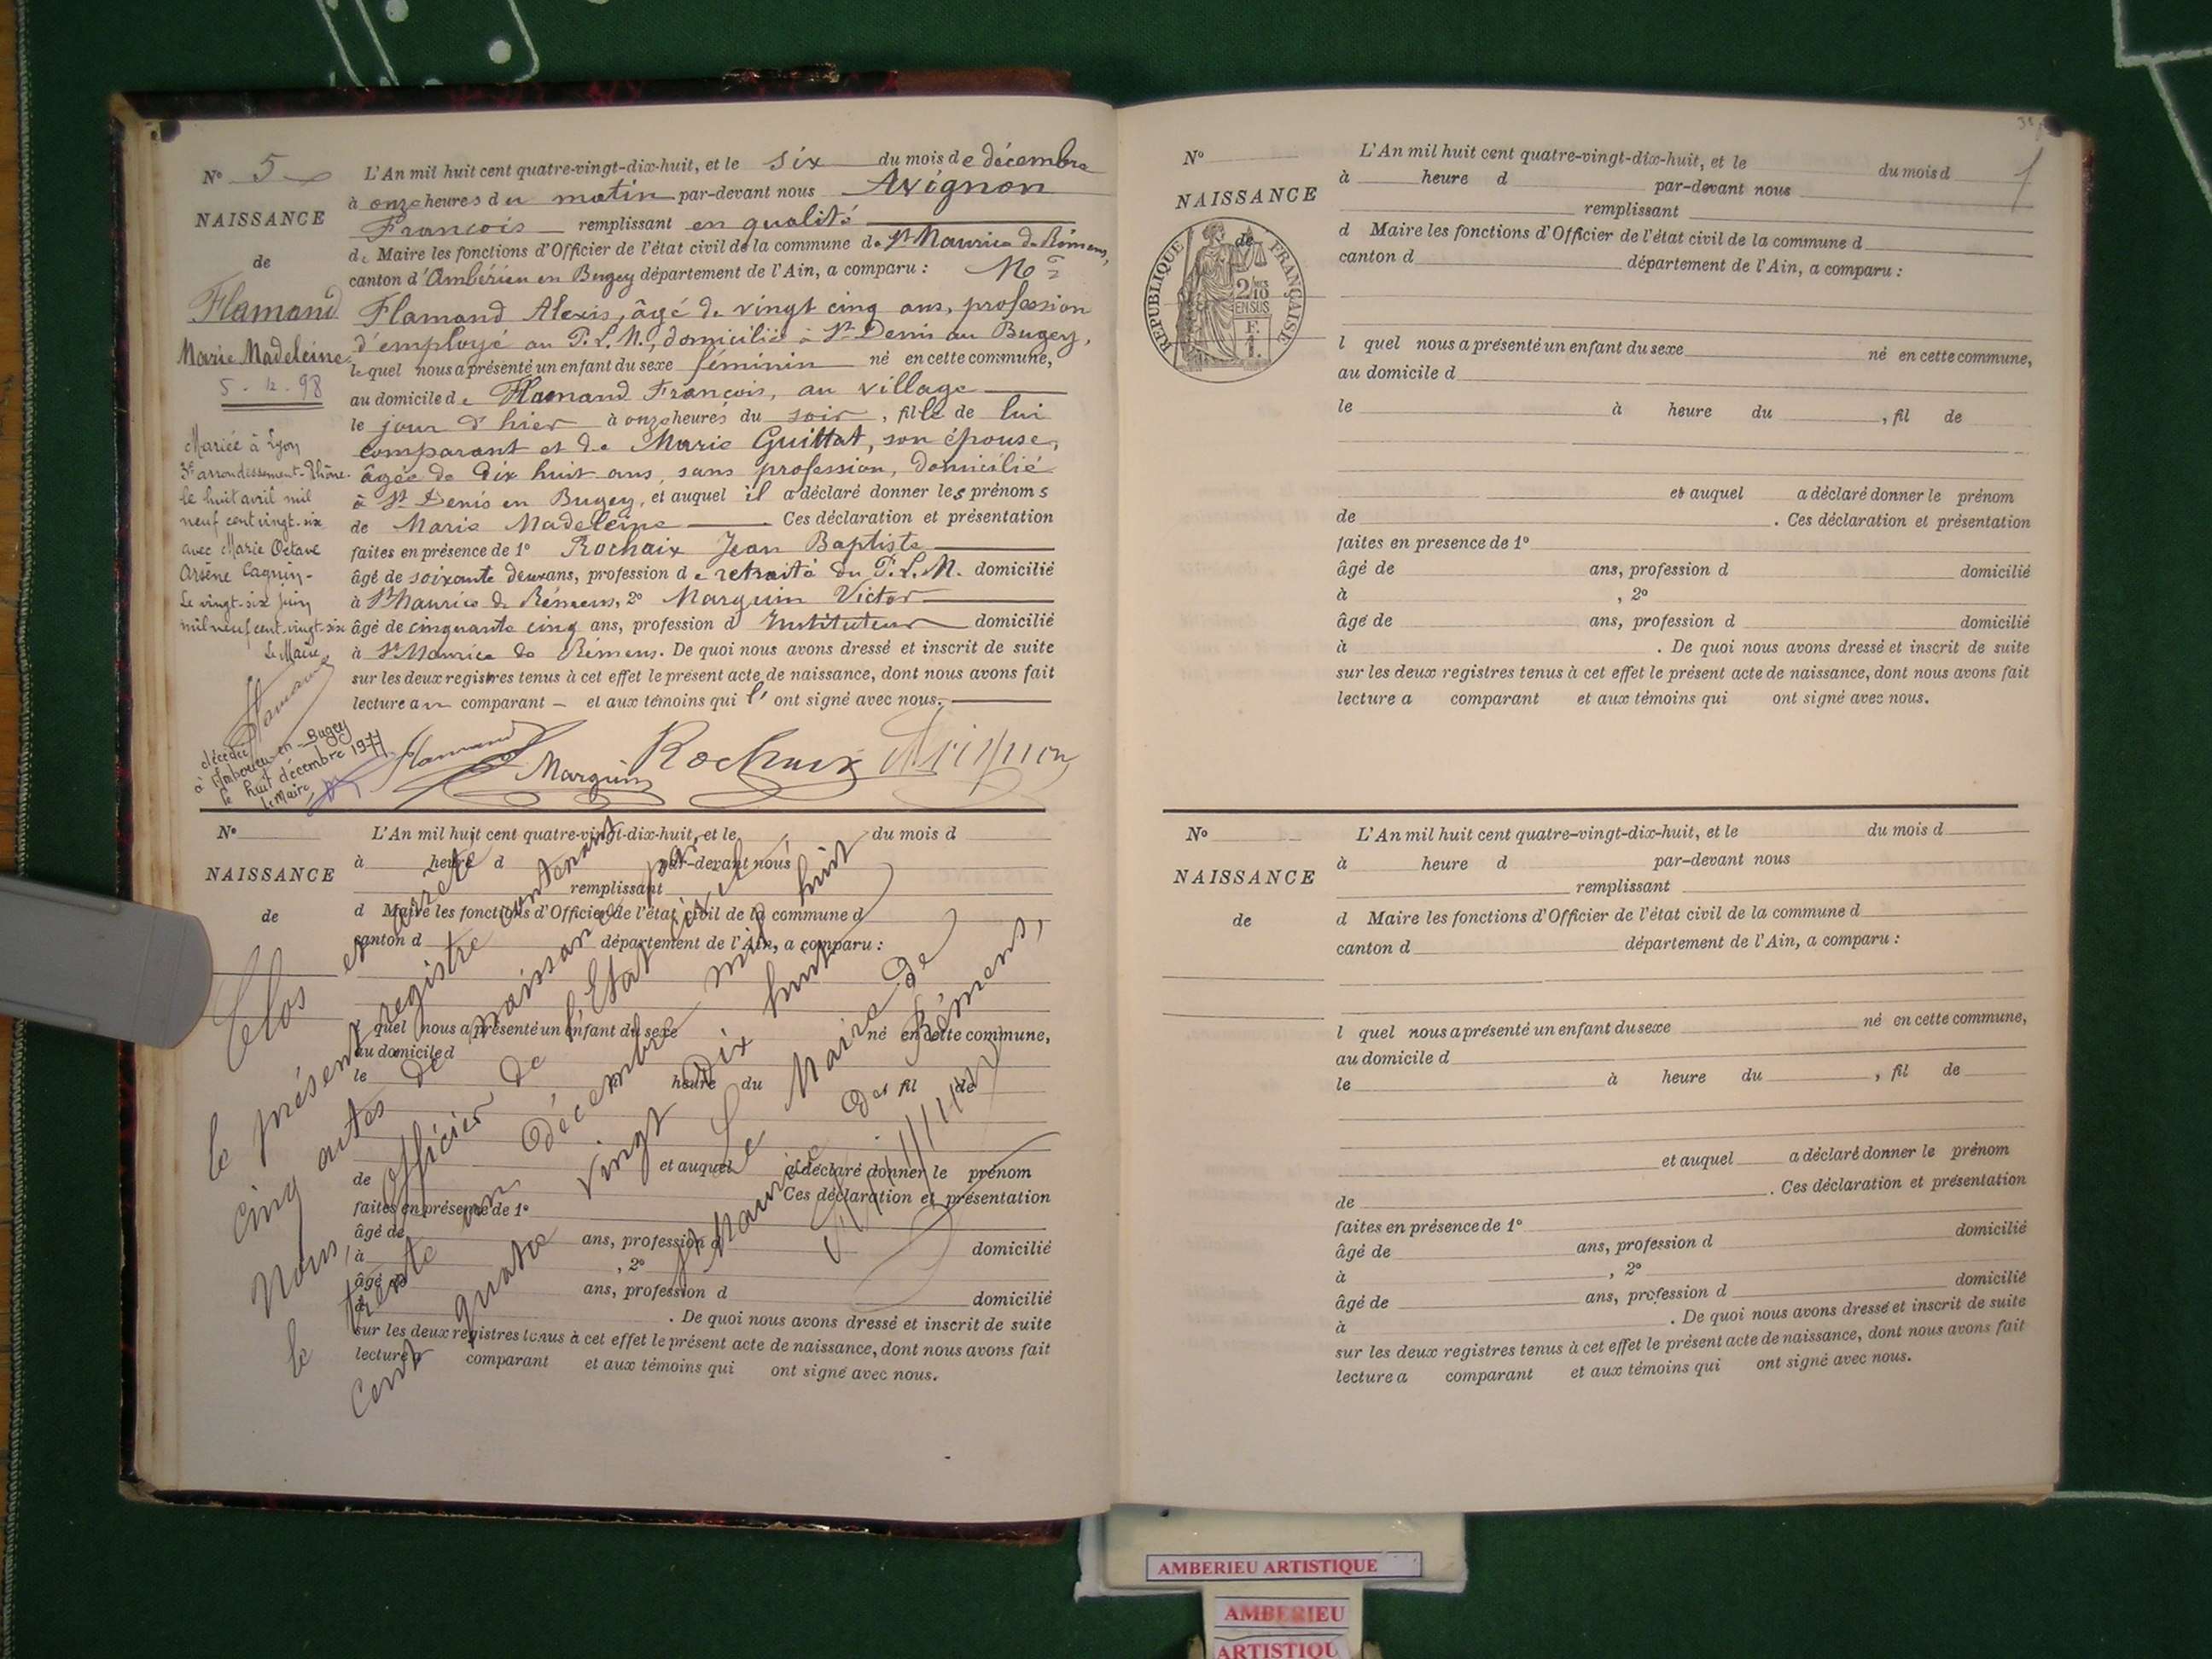 N° 5
NAISSANCE
de
Flamand
Marie Madeleine
5 - 12 - 98
Mariée à Lyon
3e arrondissement - Rhône.
le huit avril mil
neuf cent vingt-six
avec Marie Octave
Arsène Cagnin -
Le vingt-six juin
mil neuf cent vingt-six
Le Maire
Flamand
décédée
à Ambérieu-en-Bugey
le huit décembre 1977
Le Maire
L'An mil huit cent quatre-vingt-dix-huit, et le six du mois de décembre
à onze heures du matin par-devant nous Avignon
François remplissant en qualité
de Maire les fonctions d'Officier de l'état civil de la commune de St Maurice de Rémens,
canton d'Ambérieu en Bugey département de l'Ain, a comparu :
Flamand Alexis, âgé de vingt cinq ans, profession
d'employé au P. L. M., domicilié à St Denis au Bugey,
lequel nous a présenté un enfant du sexe féminin né en cette commune,
au domicile de Flamand François, au village
le jour d'hier à onze heures du soir, fille de lui
comparant et de Marie Guittat, son épouse,
âgée de dix huit ans, sans profession, domicilié
à St Denis en Bugey, et auquel il a déclaré donner les prénoms
de Marie Madeleine Ces déclaration et présentation
faites en présence de 1° Rochaix Jean Baptiste
âgé de soixante deux ans, profession de retraité du P. L. M. domicilié
à St Maurice de Rémens, 2° Marguin Victor
âgé de cinquante cinq ans, profession d Instituteur domicilié
à St Maurice de Rémens. De quoi nous avons dressé et inscrit de suite
sur les deux registres tenus à cet effet le présent acte de naissance, dont nous avons fait
lecture au comparant et aux témoins qui l' ont signé avec nous.
Flamand Marguin Rochaix Avignon
N°
NAISSANCE
de
L'An mil huit cent quatre-vingt-dix-huit, et le du mois d
à heure d par-devant nous
remplissant
d Maire les fonctions d'Officier de l'état civil de la commune d
canton d département de l'Ain, a comparu :
l quel nous a présenté un enfant du sexe né en cette commune,
au domicile d
le à heure du fil de
et auquel a déclaré donner le prénom
de Ces déclaration et présentation
faites en présence de 1°
âgé de ans, profession d domicilié
à , 2°
âgé de ans, profession d domicilié
à . De quoi nous avons dressé et inscrit de suite
sur les deux registres tenus à cet effet le présent acte de naissance, dont nous avons fait
lecture a comparant et aux témoins qui ont signé avec nous.
Clos et arrêté
le présent registre contenant
cinq actes de naissance par
Nous, Officier de l'Etat civil
le trente un décembre mil huit
cent quatre vingt dix huit
Le Maire de
St Maurice de Rémens,
Avignon
N°
NAISSANCE
de
RÉPUBLIQUE FRANÇAISE
2/10
EN SUS
L'An mil huit cent quatre-vingt-dix-huit, et le du mois d
à heure d par-devant nous
remplissant
d Maire les fonctions d'Officier de l'état civil de la commune d
canton d département de l'Ain, a comparu :
l quel nous a présenté un enfant du sexe né en cette commune,
au domicile d
le à heure du , fil de
et auquel a déclaré donner le prénom
de . Ces déclaration et présentation
faites en presence de 1°
âgé de ans, profession d domicilié
à , 2°
âgé de ans, profession d domicilié
à . De quoi nous avons dressé et inscrit de suite
sur les deux registres tenus à cet effet le présent acte de naissance, dont nous avons fait
lecture a comparant et aux témoins qui ont signé avec nous.
N°
NAISSANCE
de
L'An mil huit cent quatre-vingt-dix-huit, et le du mois d
à heure d par-devant nous
remplissant
d Maire les fonctions d'Officier de l'état civil de la commune d
canton d département de l'Ain, a comparu :
l quel nous a présenté un enfant du sexe né en cette commune,
au domicile d
le à heure du , fil de
et auquel a déclaré donner le prénom
de . Ces déclaration et présentation
faites en présence de 1°
âgé de ans, profession d domicilié
à , 2°
âgé de ans, profession d domicilié
à . De quoi nous avons dressé et inscrit de suite
sur les deux registres tenus à cet effet le présent acte de naissance, dont nous avons fait
lecture a comparant et aux témoins qui ont signé avec nous.
AMBERIEU ARTISTIQUE
AMBERIEU
ARTISTIQU